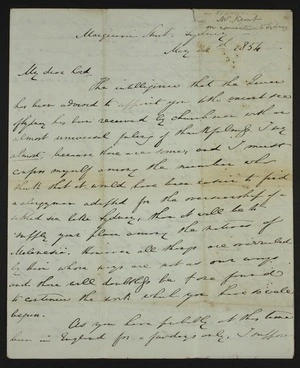 Macquarie Street, Sydney
May 1854
My dear Lord
The intelligence that the Queen
has been advised to appoint you to the vacant see
of Sydney has been received by churchmen with an
almost universal feeling of thankfulness. I say
almost, because there are some, and I must
confess myself among the number who
think that it would have been easier to find
a clergyman adapted for the overseership of
settled see like Sydney, than it will be to
supply your place among the natives of
Melanesia. However all things are overruled
by him whose ways are not as our ways
and there will doubtless be some found
to continue the work which you have so well
begun.
As you have probably at this time
been in England for a few days only, I suppose